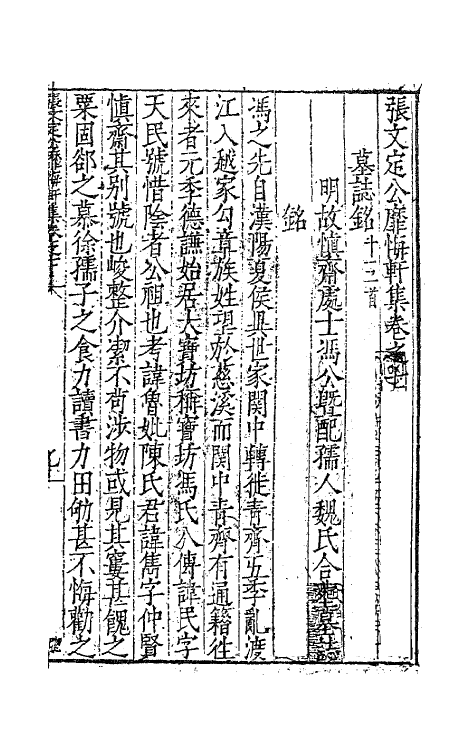 張文定公靡悔軒集卷之
墓誌銘十三首
明故慎齋處士馮公暨配孺人魏氏合葬墓誌
銘
馮之先自漢陽夏侯異世家関中轉徙青齊五季亂渡
江入越家勾章族姓望於慈溪而関中青齊有通籍往
來者元季德謙始居大寶坊稱寶坊馮氏八傳諱民字
天民號惜陰者公祖也考諱魯妣陳氏君諱雋字仲賢
慎齋其别號也峻整介潔不苟涉物或見其窶甚餽之
粟固郤之慕徐孺子之食力讀書力田劬甚不悔勸之